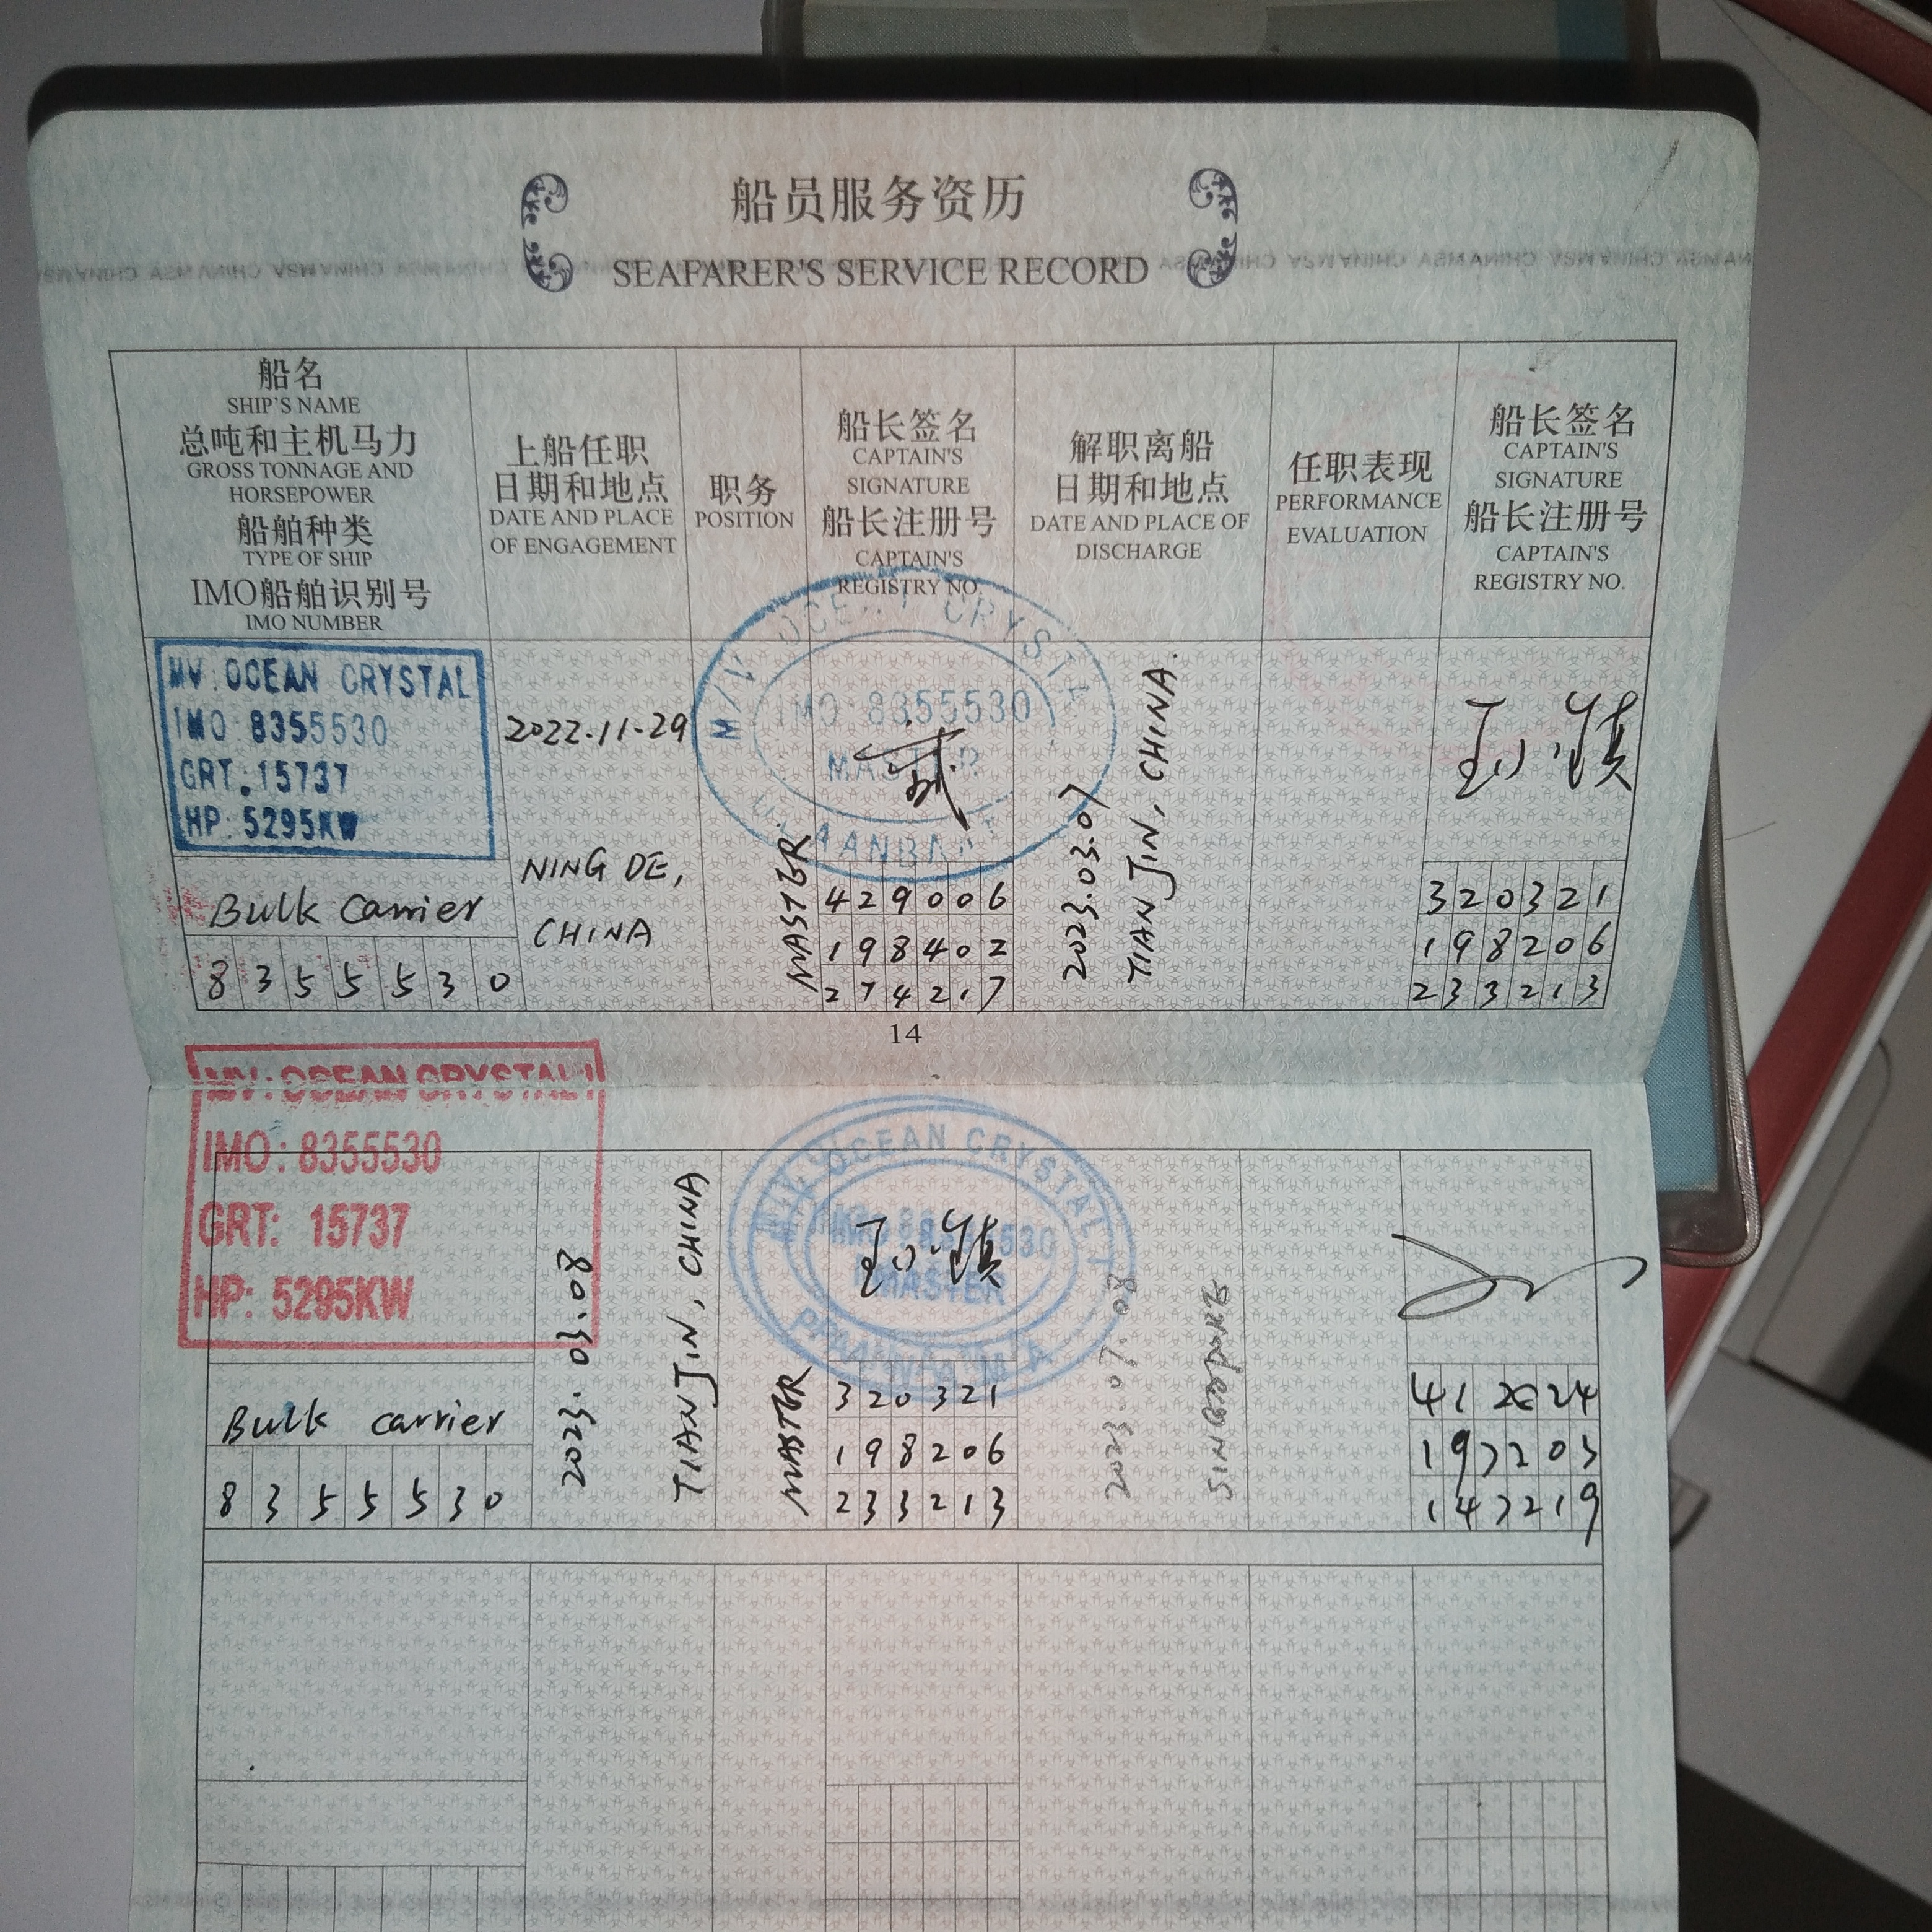 船员服务资历
SEAFARER'S SERVICE RECORD
船名
SHIP'S NAME
总吨和主机马力
GROSS TONNAGE AND
HORSEPOWER
船舶种类
TYPE OF SHIP
IMO船舶识别号
IMO NUMBER
上船任职
日期和地点
DATE AND PLACE
OF ENGAGEMENT
职务
POSITION
船长签名
CAPTAIN'S
SIGNATURE
船长注册号
CAPTAIN'S
REGISTRY NO.
解职离船
日期和地点
DATE AND PLACE OF
DISCHARGE
任职表现
PERFORMANCE
EVALUATION
船长签名
CAPTAIN'S
SIGNATURE
船长注册号
CAPTAIN'S
REGISTRY NO.
MV: OCEAN CRYSTAL
IMO: 8355530
GRT: 15737
HP: 5295KW
Bulk Carrier
8355530
2022.11.29
NING DE,
CHINA
MASTER
IMO: 8355530
MASTER
429006
198402
274217
2023.03.07
TIANJIN, CHINA.
320321
198206
233213
14
MV: OCEAN CRYSTAL
IMO: 8355530
GRT: 15737
HP: 5295KW
Bulk carrier
8355530
2023.03.08
TIANJIN, CHINA
MASTER
M/V OCEAN CRYSTAL
MASTER
320321
198206
233213
2023.07.08
SINGAPORE
197203
147219